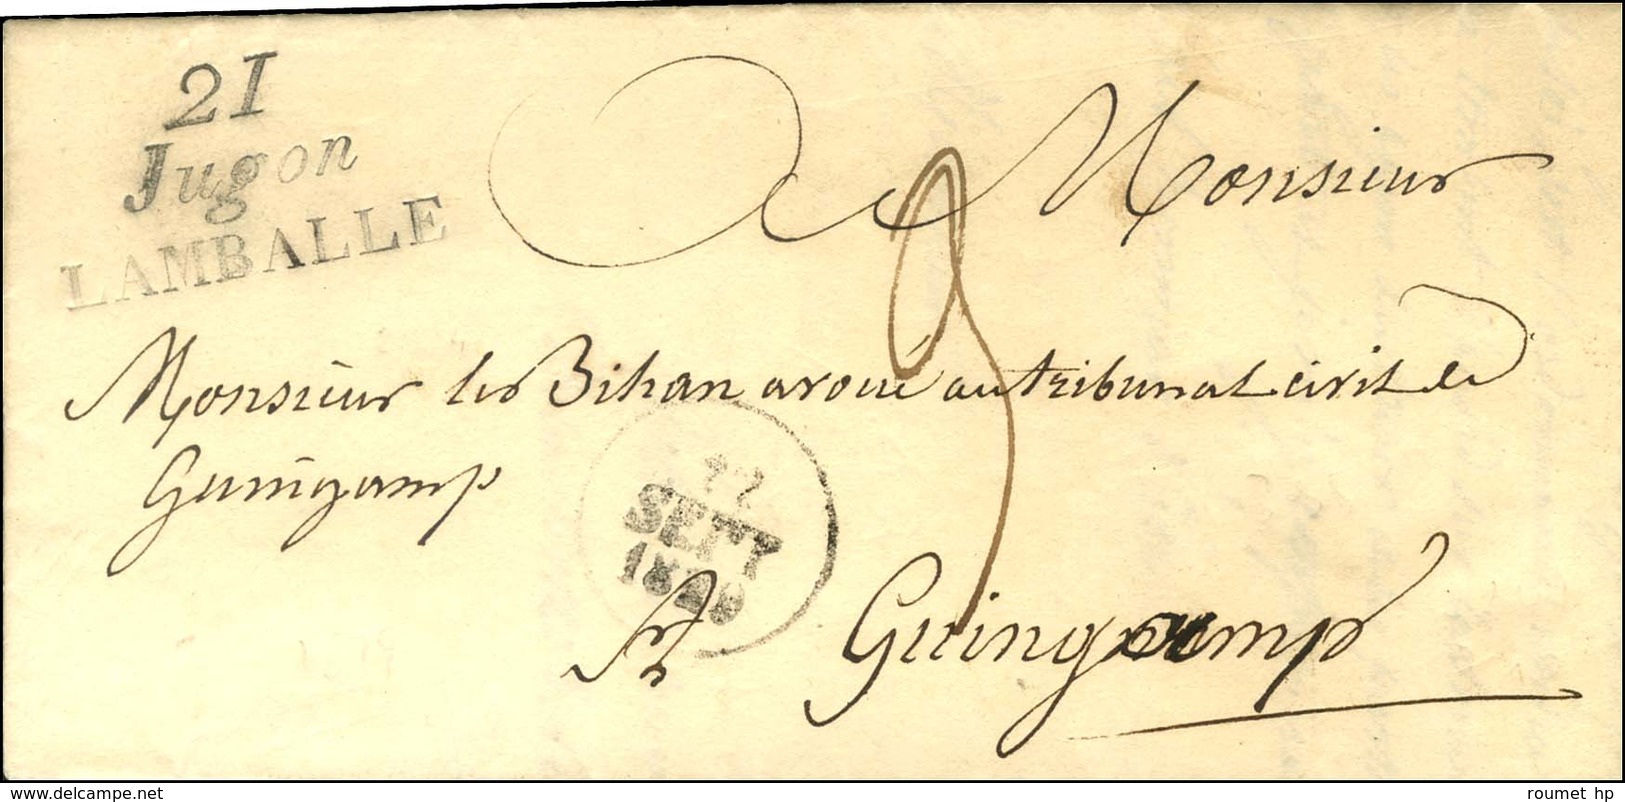 21
Jugon
LAMBALLE
A Monsieur
Monsieur le Bihan avoué au tribunal civil de
Guingamp
22
SEPT
1829
A Guingamp
www.delcampe.net
roumet hp